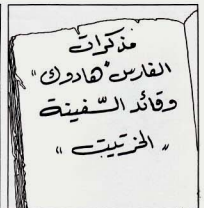 مذكرات
الفارس "هادوك"
وقائد السّفينة
"الخرتيت"